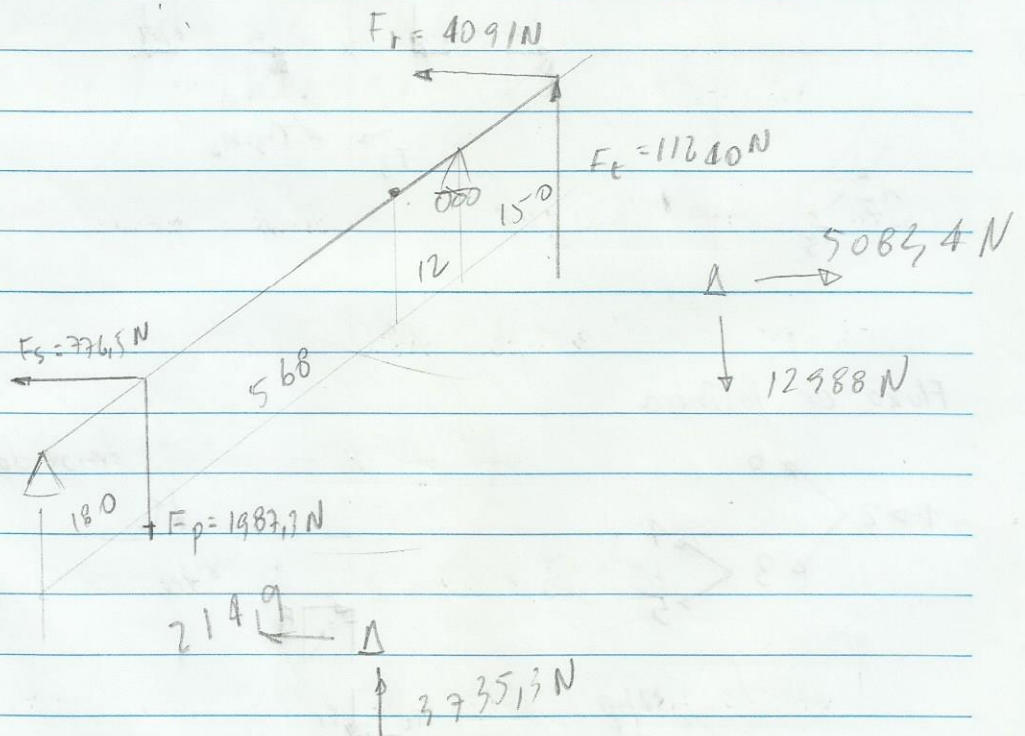 Fr = 4091N
Ft = 11240 N
150
12
5082,4 N
Fs = 776,5 N
568
12988 N
180
Fp = 1987,3 N
214,9
3735,3 N